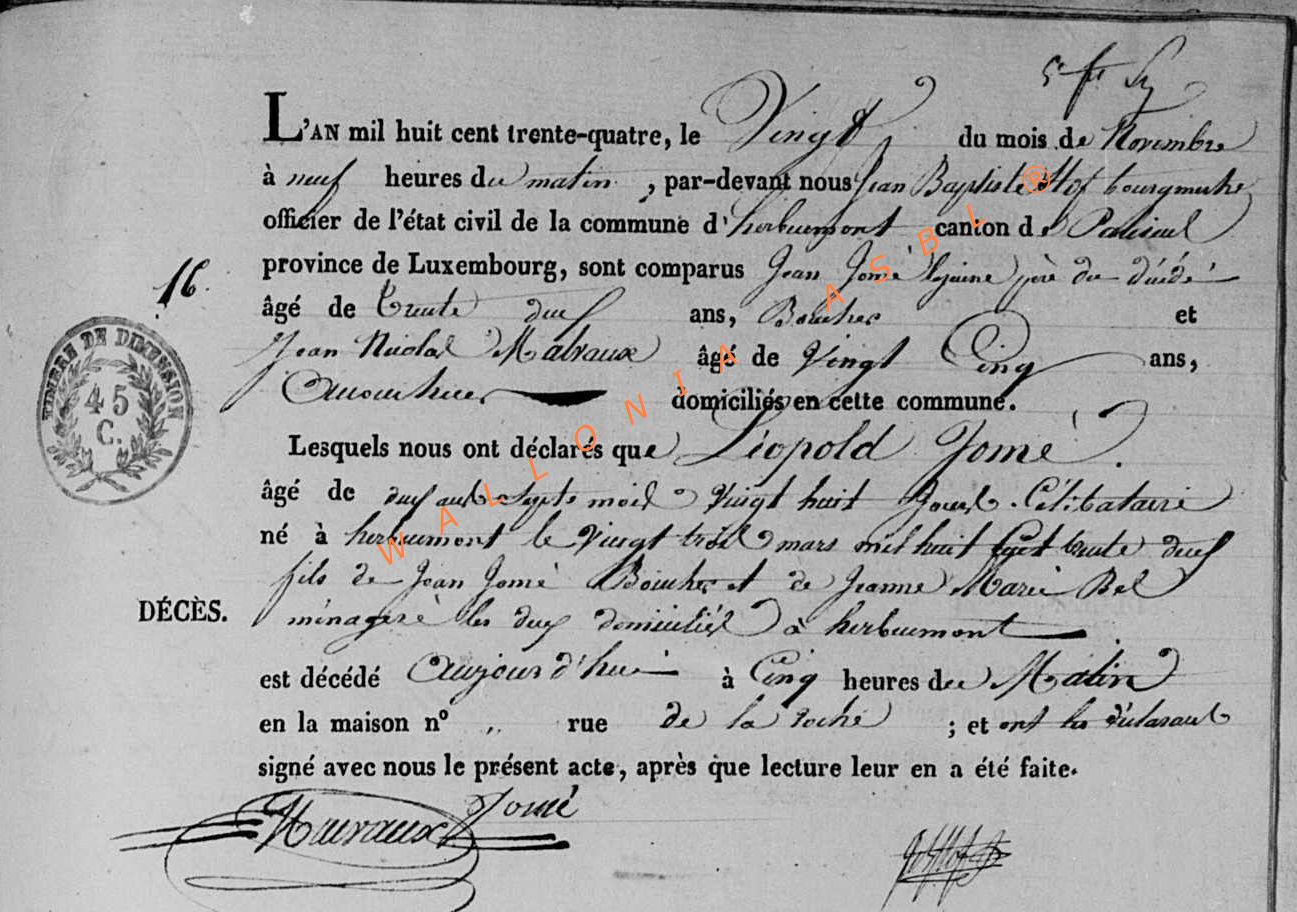 L'AN mil huit cent trente-quatre, le Vingt du mois de Novembre
à neuf heures du matin, par-devant nous Jean Baptiste Hof bourgmestre
officier de l'état civil de la commune d'herbeumont canton de Paliseul
province de Luxembourg, sont comparus Jean Jomé père du
16.
âgé de trente deux ans, Boucher et
Jean Nicolas Malvaux âgé de Vingt Cinq ans,
domiciliés en cette commune.
TIMBRE DE DIMENSION
45
C.
Lesquels nous ont déclarés que Léopold Jomé.
âgé de deux ans Septs mois Vingt huit Jours Célibataire
né à herbeumont le Vingt trois mars mil huit Cent trente deux
fils de Jean Jomé Boucher et de Jeanne Marie
DÉCÈS.
ménagère les deux domiciliés à herbeumont
est décédé Aujourd'hui à Cinq heures du Matin
en la maison nº ,, rue de la Roche ; et ont les déclarants
signé avec nous le présent acte, après que lecture leur en a été faite.
Jomé
WALLONIA ASBL ®